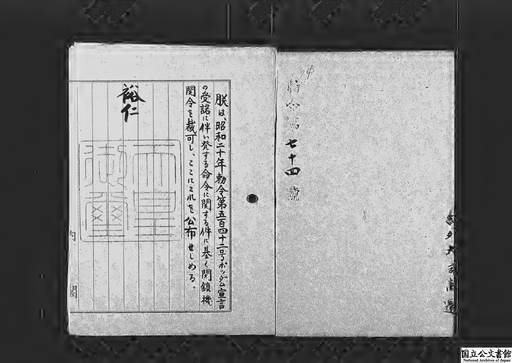 勅令第七十四号
朕は、昭和二十年勅令第五百四十二号ポツダム宣言
の受諾に伴い発する命令に関する件に基く閉鎖機
関令を裁可し、ここにこれを公布せしめる。
裕仁
天皇
御璽
国立公文書館
National Archives of Japan